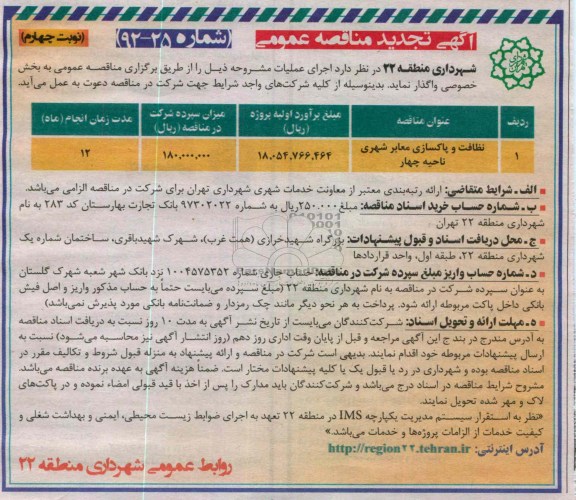 آگهی تجدید مناقصه عمومی (شماره ۲۵-۹۲) (نوبت چهارم)
شهرداری منطقه ۲۲ در نظر دارد اجرای عملیات مشروحه ذیل را از طریق برگزاری مناقصه عمومی به بخش
خصوصی واگذار نماید. بدینوسیله از کلیه شرکت‌های واجد شرایط جهت شرکت در مناقصه دعوت به عمل می‌آید.
ردیف عنوان مناقصه مبلغ برآورد اولیه پروژه (ریال) میزان سپرده شرکت در مناقصه (ریال) مدت زمان انجام (ماه)
۱ نظافت و پاکسازی معابر شهری ناحیه چهار ۱۸.۰۵۴.۷۶۶.۴۶۴ ۱۸۰.۰۰۰.۰۰۰ ۱۲
الف ـ شرایط متقاضی: ارائه رتبه‌بندی معتبر از معاونت خدمات شهری شهرداری تهران برای شرکت در مناقصه الزامی می‌باشد.
ب ـ شماره حساب خرید اسناد مناقصه: مبلغ ۲۵۰.۰۰۰ ریال به شماره ۹۷۳۰۲۰۲۲ بانک تجارت بهارستان کد ۲۸۳ به نام
شهرداری منطقه ۲۲ تهران
ج ـ محل دریافت اسناد و قبول پیشنهادات: بزرگراه شهیدخرازی (همت غرب)، شهرک شهیدباقری، ساختمان شماره یک
شهرداری منطقه ۲۲، طبقه اول، واحد قراردادها
د ـ شماره حساب واریز مبلغ سپرده شرکت در مناقصه: حساب جاری شماره ۱۰۰۴۵۷۵۳۵۲ نزد بانک شهر شعبه شهرک گلستان
به عنوان سپرده شرکت در مناقصه به نام شهرداری منطقه ۲۲ (مبلغ سپرده می‌بایست حتماً به حساب مذکور واریز و اصل فیش
بانکی داخل پاکت مربوطه ارائه شود. پرداخت به هر نحو دیگر مانند چک رمزدار و ضمانت‌نامه بانکی مورد پذیرش نمی‌باشد)
ه ـ مهلت ارائه و تحویل اسناد: شرکت‌کنندگان می‌بایست از تاریخ نشر آگهی به مدت ۱۰ روز نسبت به دریافت اسناد مناقصه
به آدرس مندرج در بند ج این آگهی مراجعه و قبل از پایان وقت اداری روز دهم (روز انتشار آگهی نیز محاسبه می‌شود) نسبت به
ارسال پیشنهادات مربوطه خود اقدام نمایند. بدیهی است شرکت در مناقصه و ارائه پیشنهاد به منزله قبول شروط و تکالیف مقرر در
اسناد مناقصه بوده و شهرداری در رد یا قبول یک یا کلیه پیشنهادات مختار است. ضمناً هزینه آگهی به عهده برنده مناقصه می‌باشد.
مشروح شرایط مناقصه در اسناد درج می‌باشد و شرکت‌کنندگان باید مدارک را پس از اخذ با قید قبولی امضاء نموده و در پاکت‌های
لاک و مهر شده تحویل نمایند.
«نظر به استقرار سیستم مدیریت یکپارچه IMS در منطقه ۲۲ تعهد به اجرای ضوابط زیست محیطی، ایمنی و بهداشت شغلی و
کیفیت خدمات از الزامات پروژه‌ها و خدمات می‌باشد.»
آدرس اینترنتی: http://region۲۲.tehran.ir
روابط عمومی شهرداری منطقه ۲۲